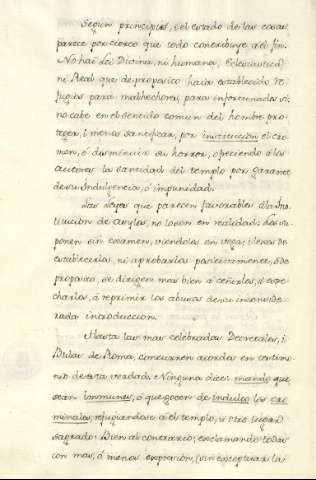 Segun principios, i el estado de las cosas
parece por cierto que todo contribuye à el fin.
No hai Lei Divina, ni humana, Eclesiastica,
ni Real que de proposito haia establecido re-
fugios para malhechores, para infortunados si:
no cabe en el sentido comun del hombre pro-
teger, i menos santificar, por institucion el cri-
men, ó disminuir su horror, ofreciendo à los
autores la santidad del templo por garante
de su Indulgencia, ó impunidad.
Las Leyes que parecen favorables à la Ins-
titucion de asylos, no lo son en realidad: Los su-
ponen sin examen, viendolos en voga; i lexos de
establecerlos, ni aprobarlos positivamente, ó de
proposito, se dirigen mas bien à ceñirlos, i estre-
charlos, ó reprimir los abusos de su inconside-
rada introduccion.
Hasta las mas celebradas Decretales, i
Bulas de Roma, concurren acordes en testimo-
nio de esta verdad. Ninguna dice: mando que
sean immunes, ó que gocen de indulto los cri-
minales, refugiandose à el templo, ú otro lugar
sagrado: Bien al contrario; exclamando todas
con mas, ó menos expresion, (sin exceptuar la